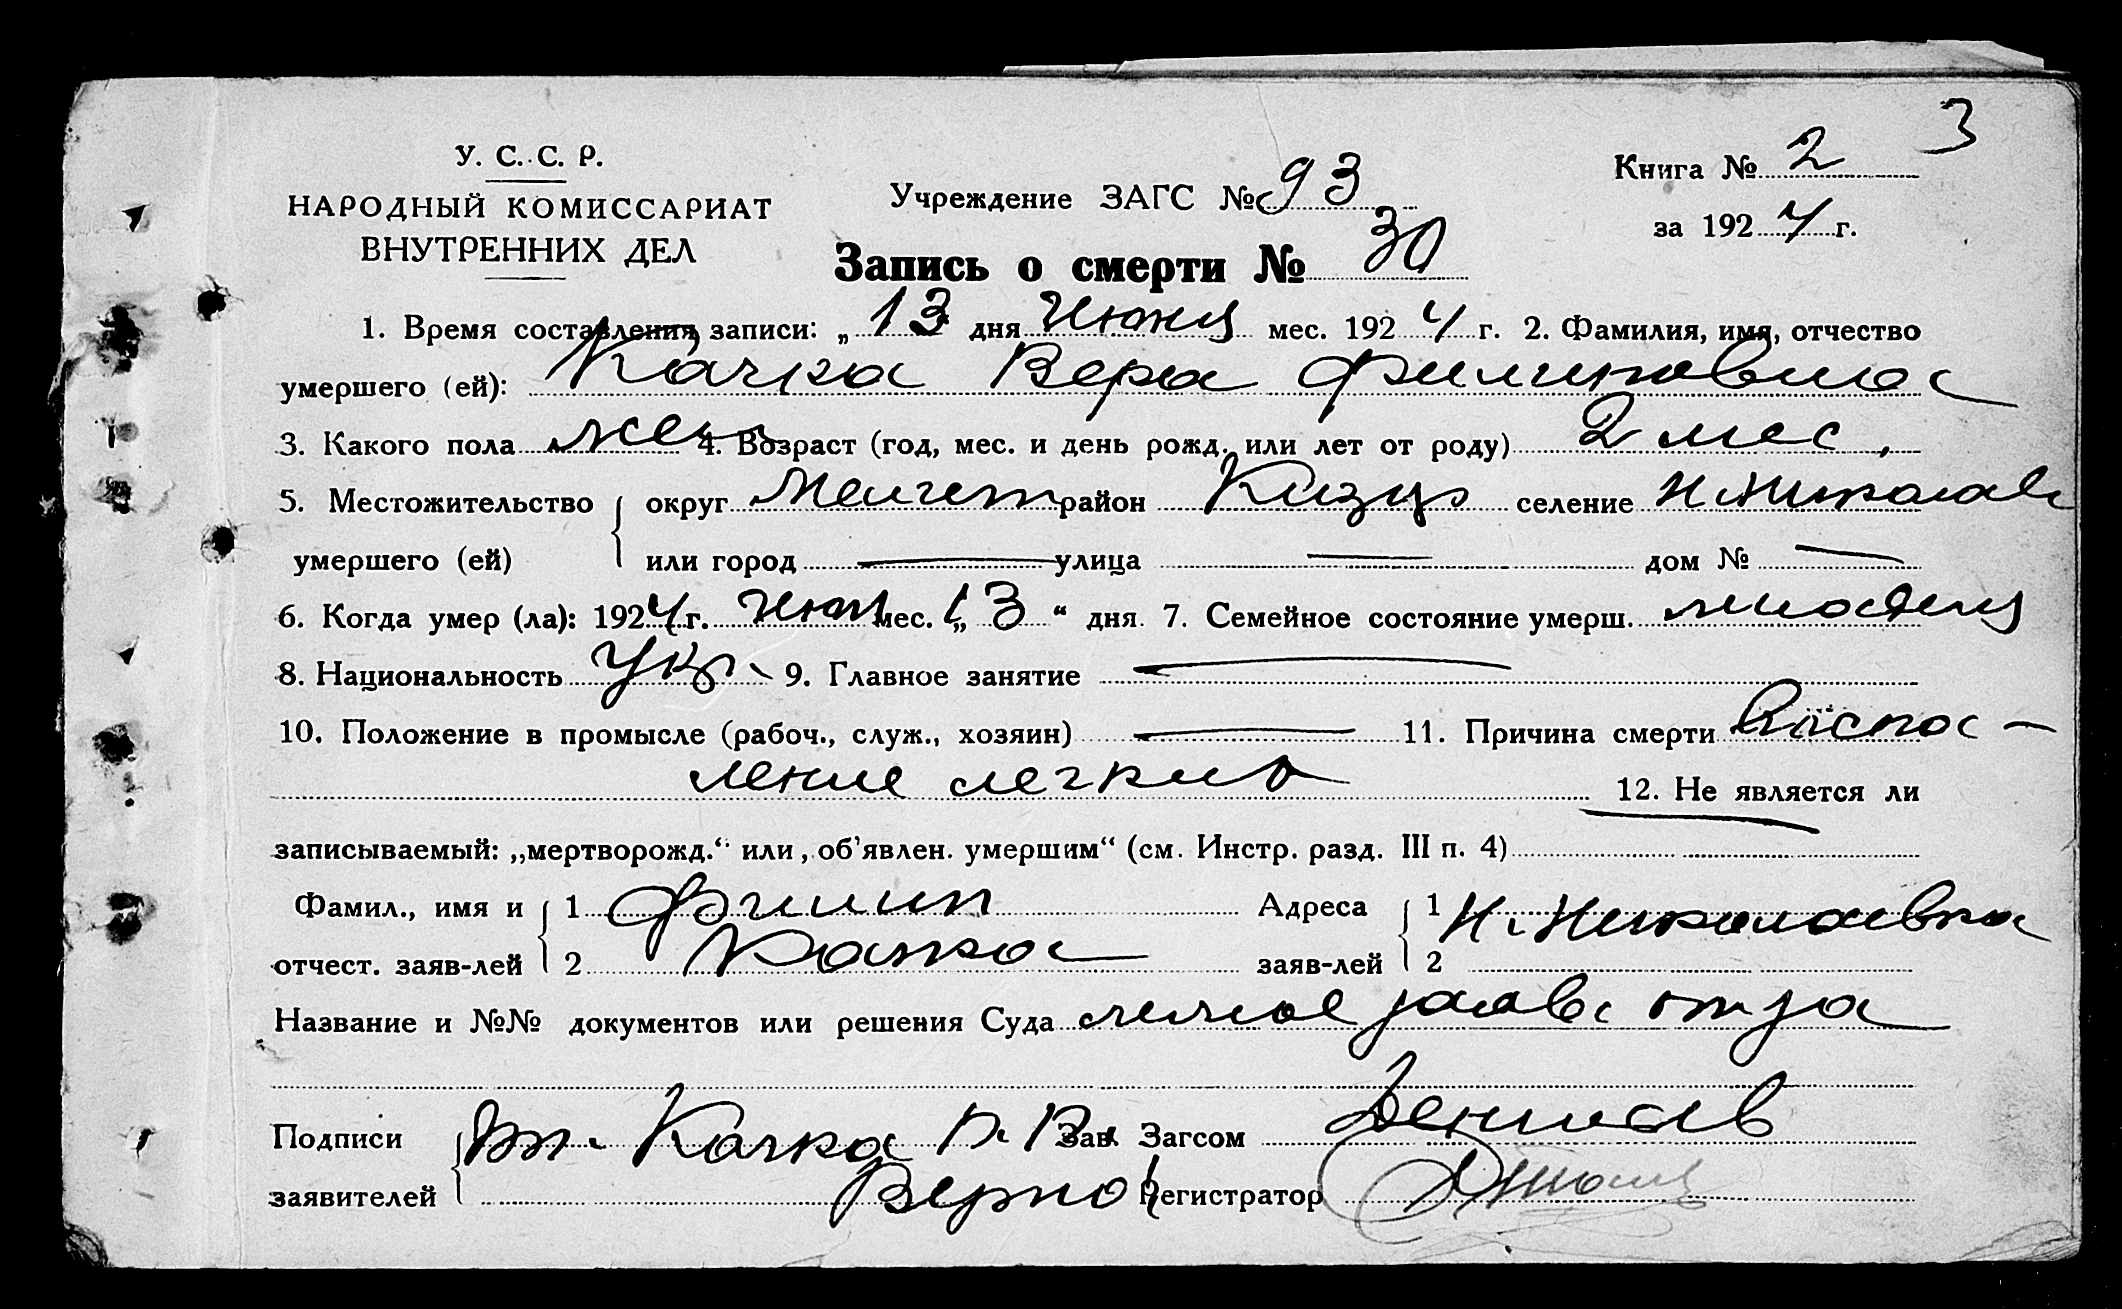 3
У. С. С. Р.
НАРОДНЫЙ КОМИССАРИАТ
ВНУТРЕННИХ ДЕЛ
Учреждение ЗАГС № 93
Книга № 2
за 1924 г.
Запись о смерти № 30
1. Время составления записи: „13 дня Июня мес. 1924 г. 2. Фамилия, имя, отчество
умершего (ей): Качка Вера Филиповна
3. Какого пола жен 4. Возраст (год, мес. и день рожд. или лет от роду) 2 мес,
5. Местожительство округ район селение Н. Николаев
умершего (ей) или город — улица — дом № —
6. Когда умер (ла): 1924 г. Июн мес. „13“ дня. 7. Семейное состояние умерш. младенц
8. Национальность Укр. 9. Главное занятие —
10. Положение в промысле (рабоч., служ., хозяин) — 11. Причина смерти Воспа-
ление легких 12. Не является ли
записываемый: „мертворожд.“ или „об'явлен. умершим“ (см. Инстр. разд. III п. 4)
Фамил., имя и 1 Филип Адреса 1 Н. Николаевка
отчест. заяв-лей 2 Качка заяв-лей 2
Название и №№ документов или решения Суда личное заяв. отца
Подписи Качка Зав. Загсом
заявителей Верно Регистратор